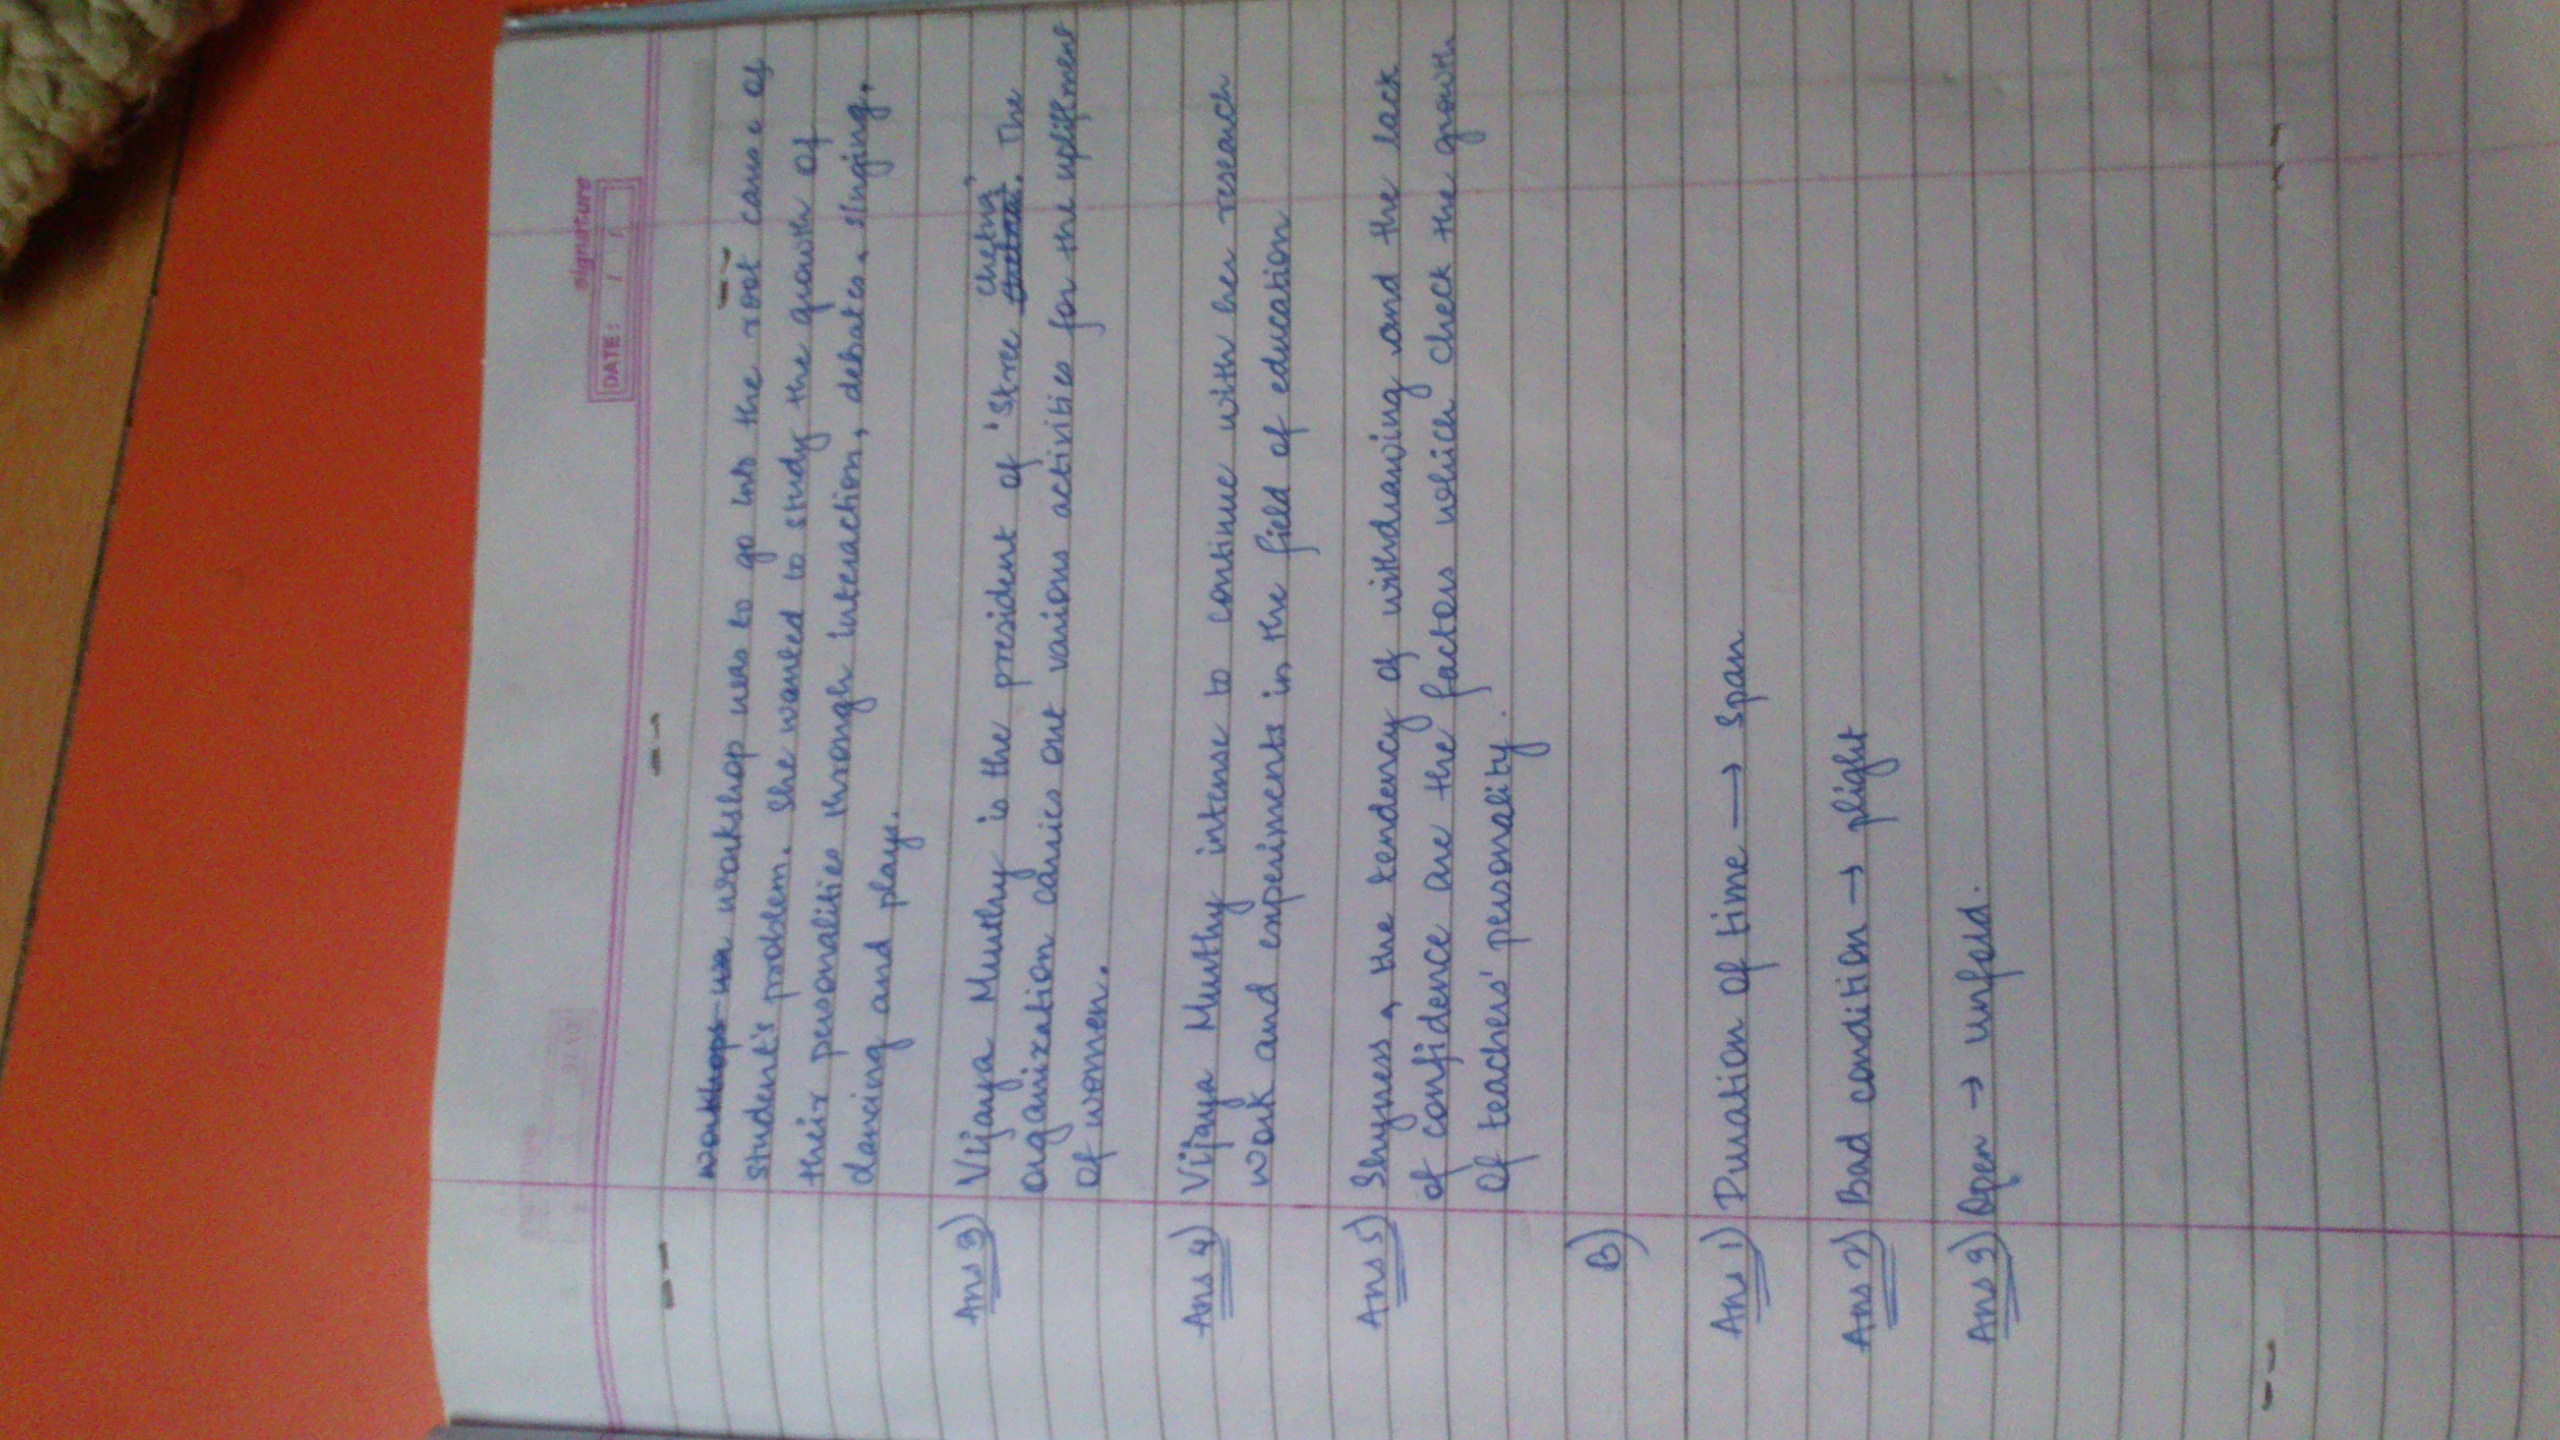 signature
DATE: / /
workshop was to go into the root cause of
student's problem. She wanted to study the growth of
their personalities through interaction, debates, singing,
dancing and plays.
Ans 3) Vijaya Murthy is the president of 'Stree chetna'. The
organization carries out various activities for the upliftment
of women.
Ans 4) Vijaya Murthy intense to continue with her research
work and experiments in the field of education
Ans 5) Shyness, the tendency of withdrawing and the lack
of confidence are the factors which check the growth
of teachers' personality.
B)
Ans 1) Duration of time → Span
Ans 2) Bad condition → plight
Ans 3) Open → unfold.